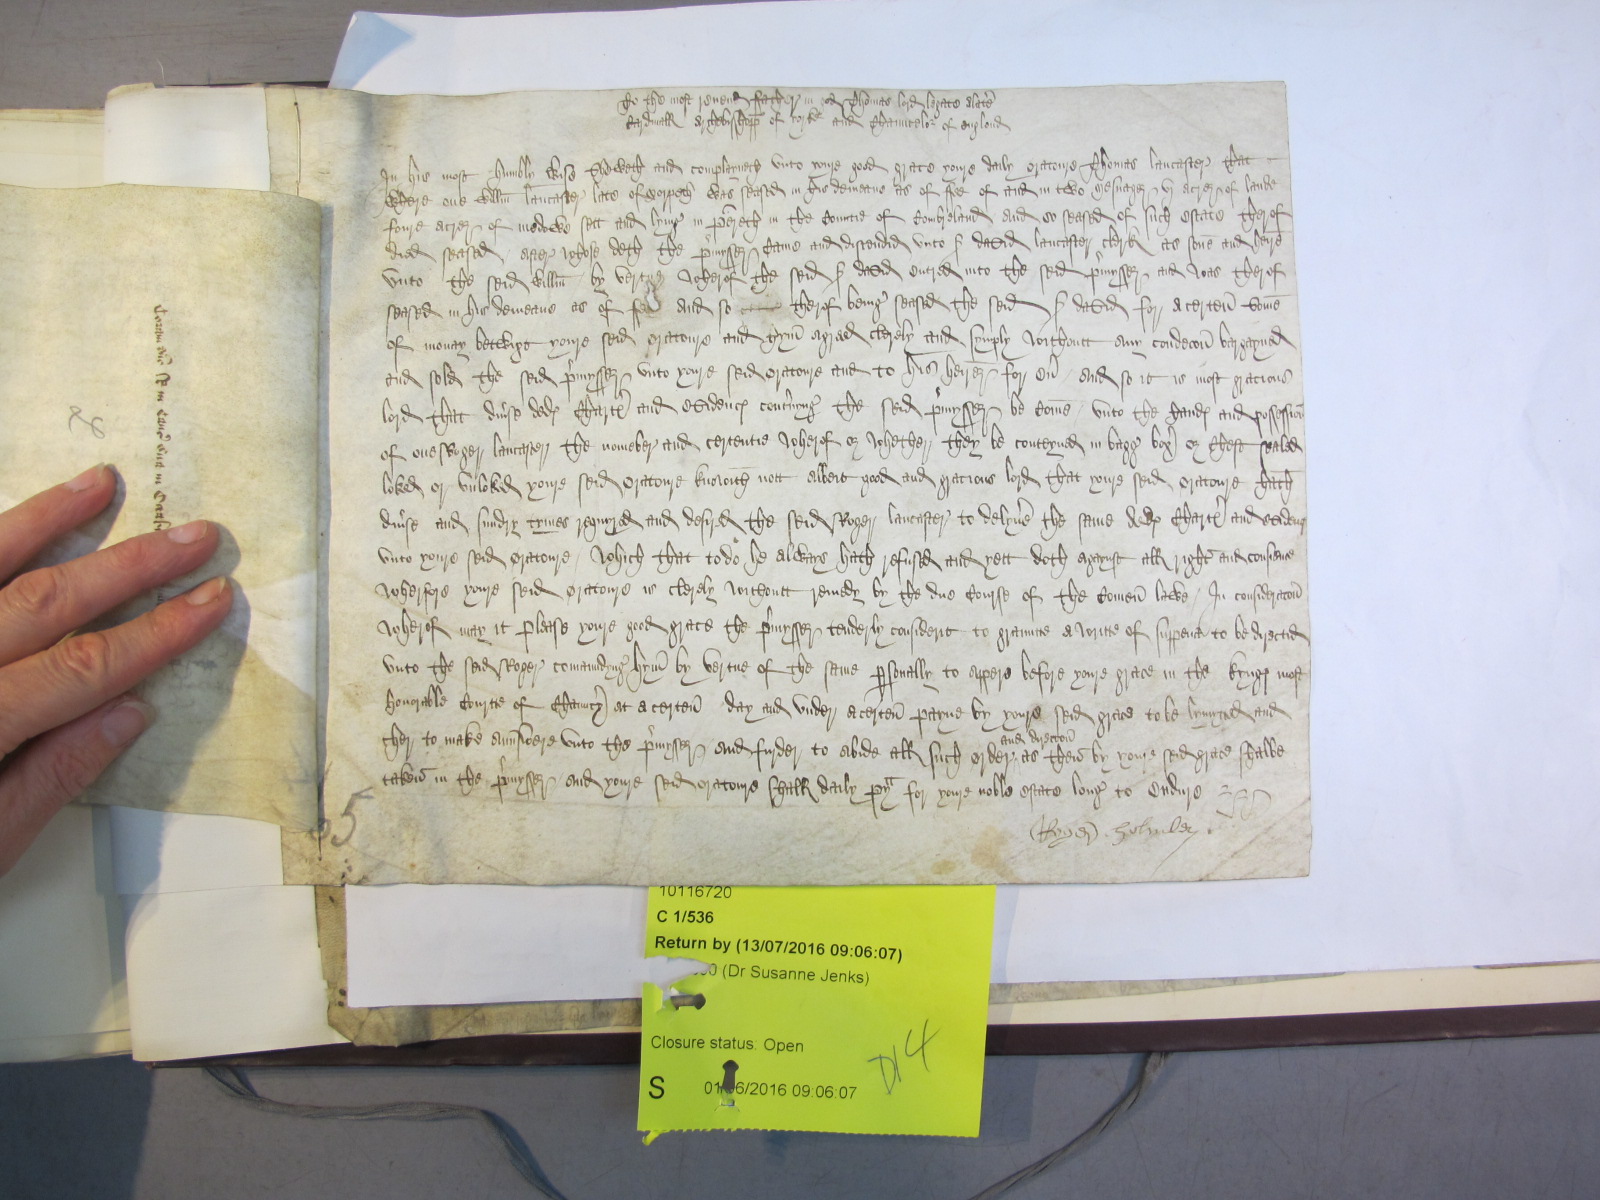 To the most reverend father in god Thomas lord legate a latere
Cardinall archbisshopp of yorke and Chaunceler of englond
In his most humbly wise sheweth and complayneth unto youre good grace youre daily oratoure Thomas lancaster that
where one Willm lancaster late of was seased in his demeane as of fee of and in two mesuages acres of lande
foure acres of medowe sett and lying in pereth in the Countie of Combreland And so seased of such estate therof
died seased after whose deth the p'mysses Came and discended unto S' David lancaster clerk as sone and heire
unto the seid Willm by vertue wherof the seid S' David entred into the seid p'mysses and was therof
seased in his demeane as of fee And so therof being seased the seid S' David for a certen some
of money betwixt youre seid oratoure and hym agreed clerely and symply withoutt any condecon bargayned
and sold the seid p'mysses unto youre seid oratoure and to his heires for ever And so it is most gracious
lord that div'se dedes Chart' and evidences conc'nyng the seid p'mysses be come unto the handes and possession
of one Roger lancaster the nomeber and certentie wherof or whether they be conteyned in bagg box or Chest sealed
loked or unloked youre seid oratoure knowith nott Albeit good and gracious lord that youre seid oratoure hath
div'se and sundry tymes requyred and desyred the seid Roger lancaster to delyv'e the same dedes Chart' and evidence
unto youre seid oratoure which that to do he always hath refused and yett doth agaynst all right and consience
wherfore youre seid oratoure is clerely withoutt remedy by the due Course of the Comen lawe In consideracon
wherof may it please youre good grace the p'mysses tenderly considerit to graunte a writte of suppena to be directed
unto the seid Roger comaundyng hym by vertue of the same p'sonally to appere before youre grace in the kynges most
honorable Courte of Chauncery at a certen day and under a certen payne by youre seid grace to be lymyted and
ther to make aunswere unto the p'mysses and furder to abide all such order and direccon as then by youre seid grace shalbe
taken in the p'mysses and youre seid oratoure shall daily pray for youre noble estate long to endure
Roger
&
5
10116720
C 1/536
Return by (13/07/2016 09:06:07)
(Dr Susanne Jenks)
Closure status: Open
S 01/06/2016 09:06:07
D14